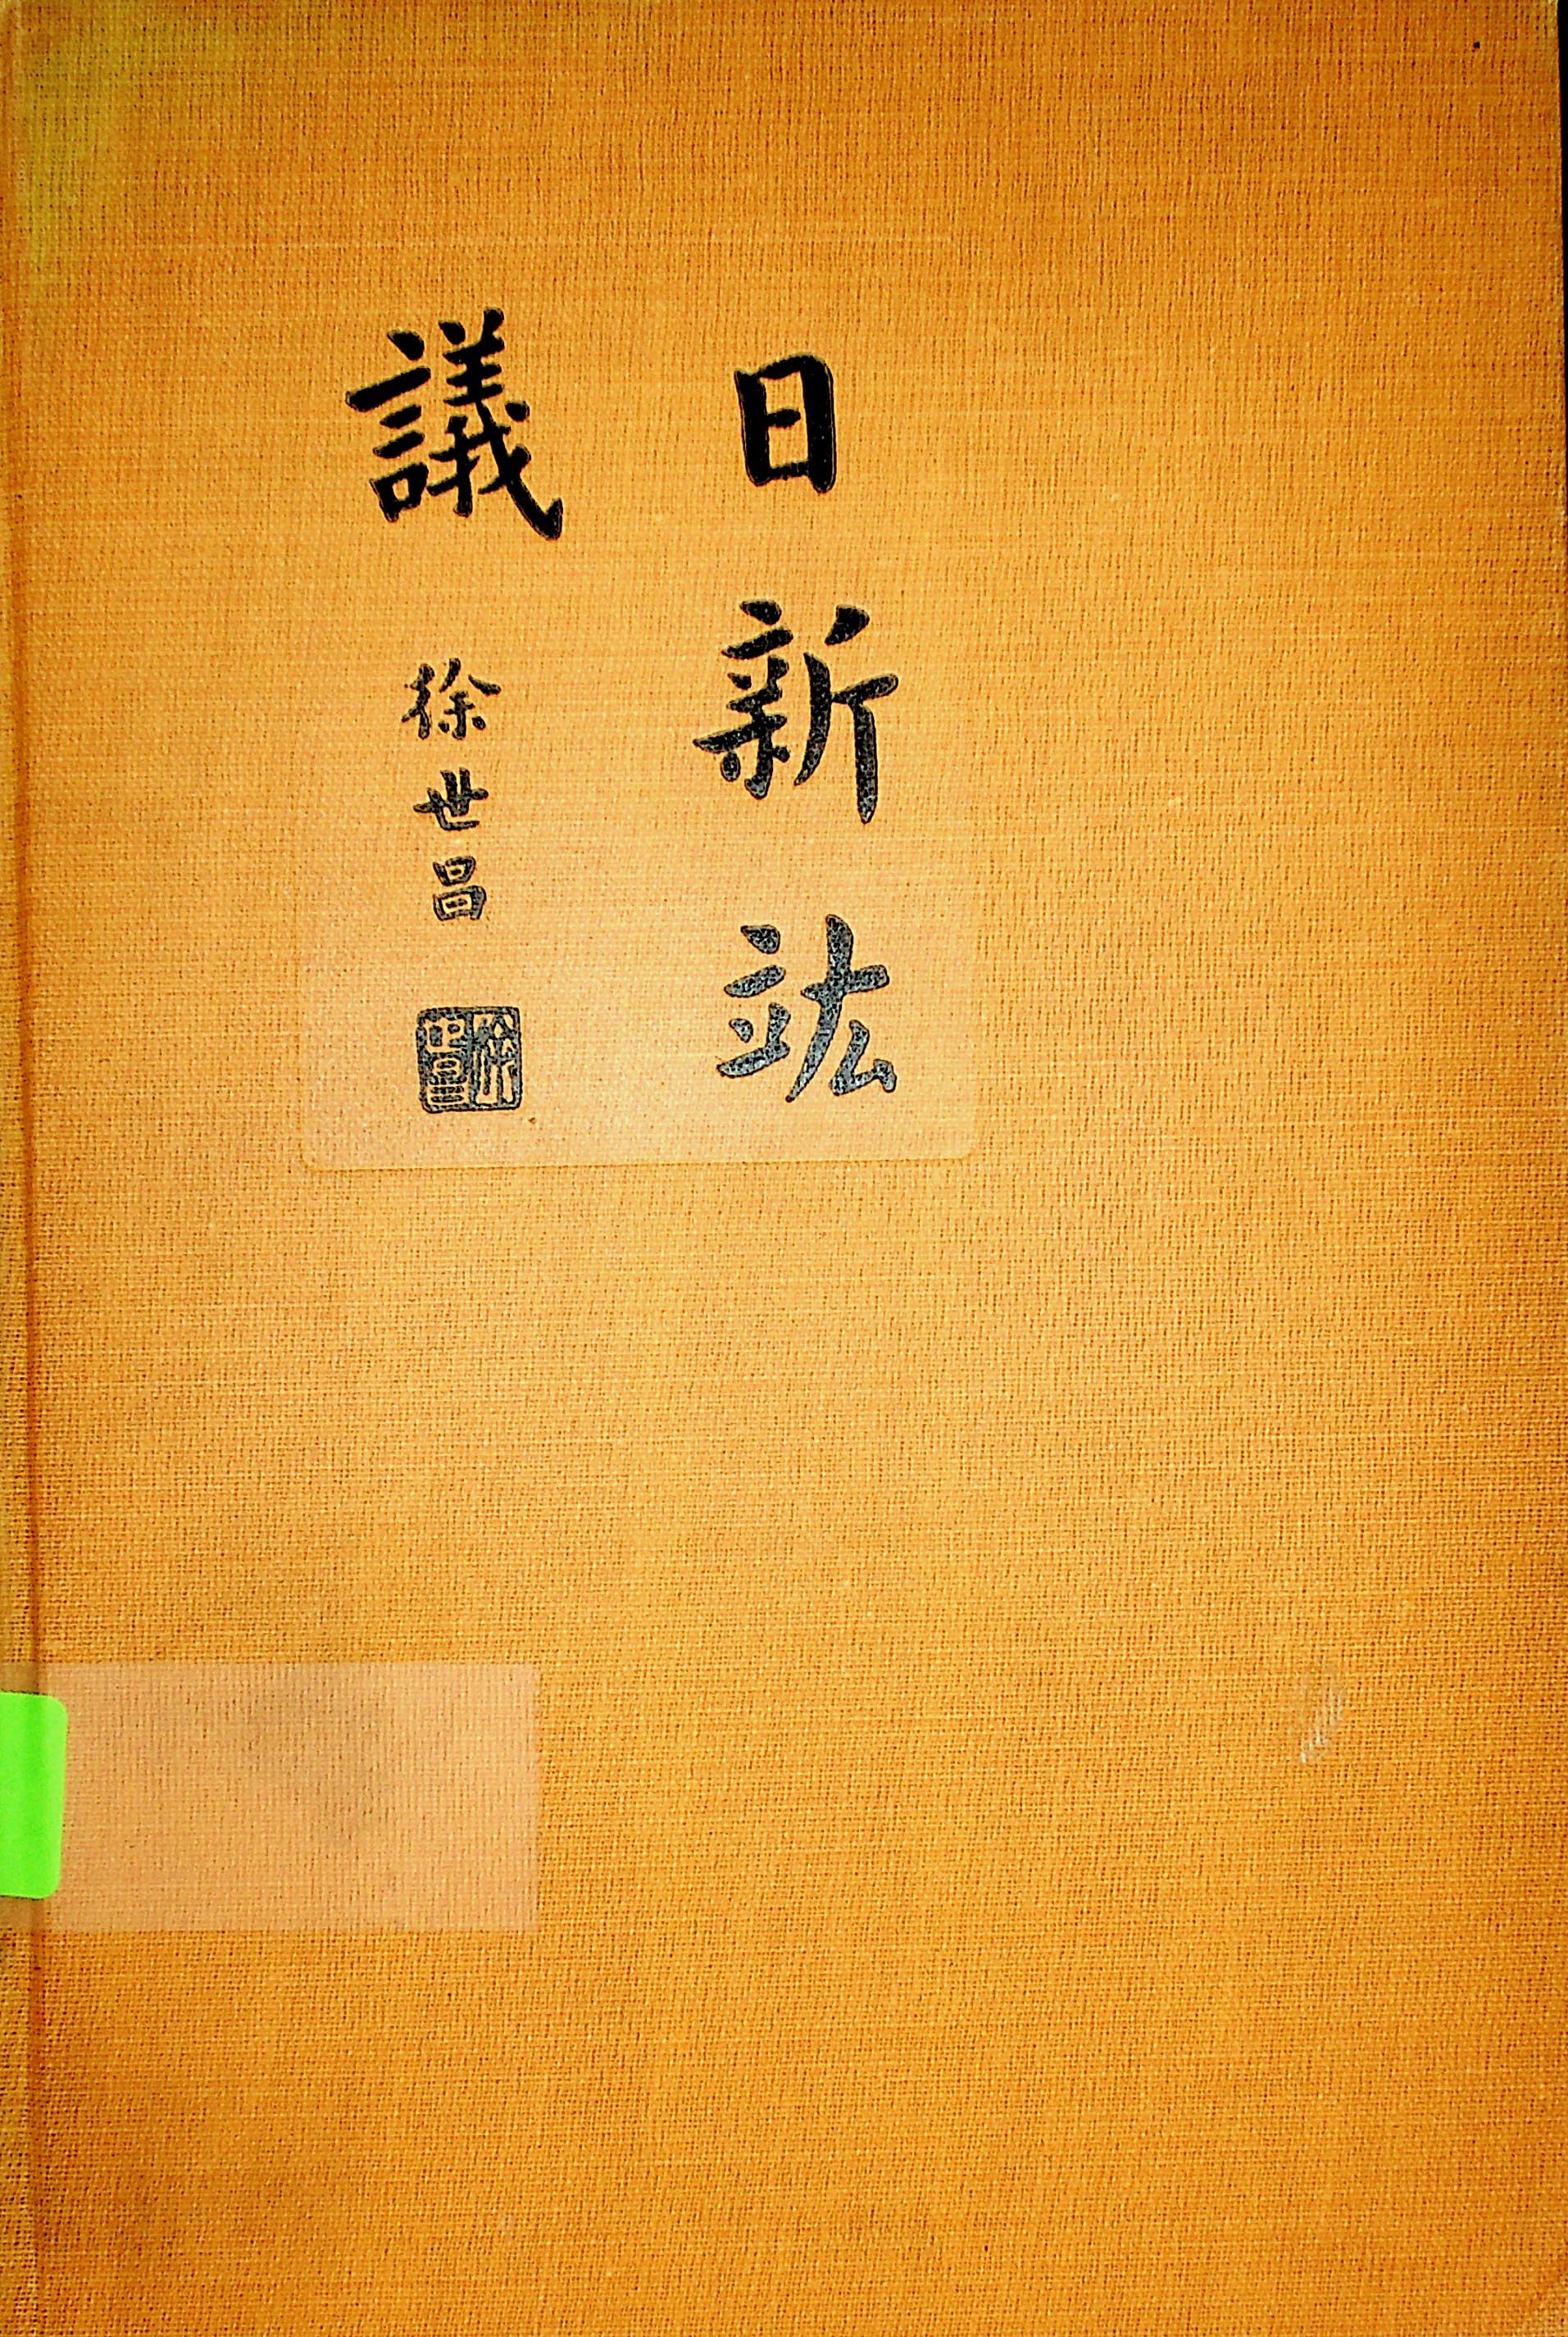 日新竑
議
徐世昌
徐世昌